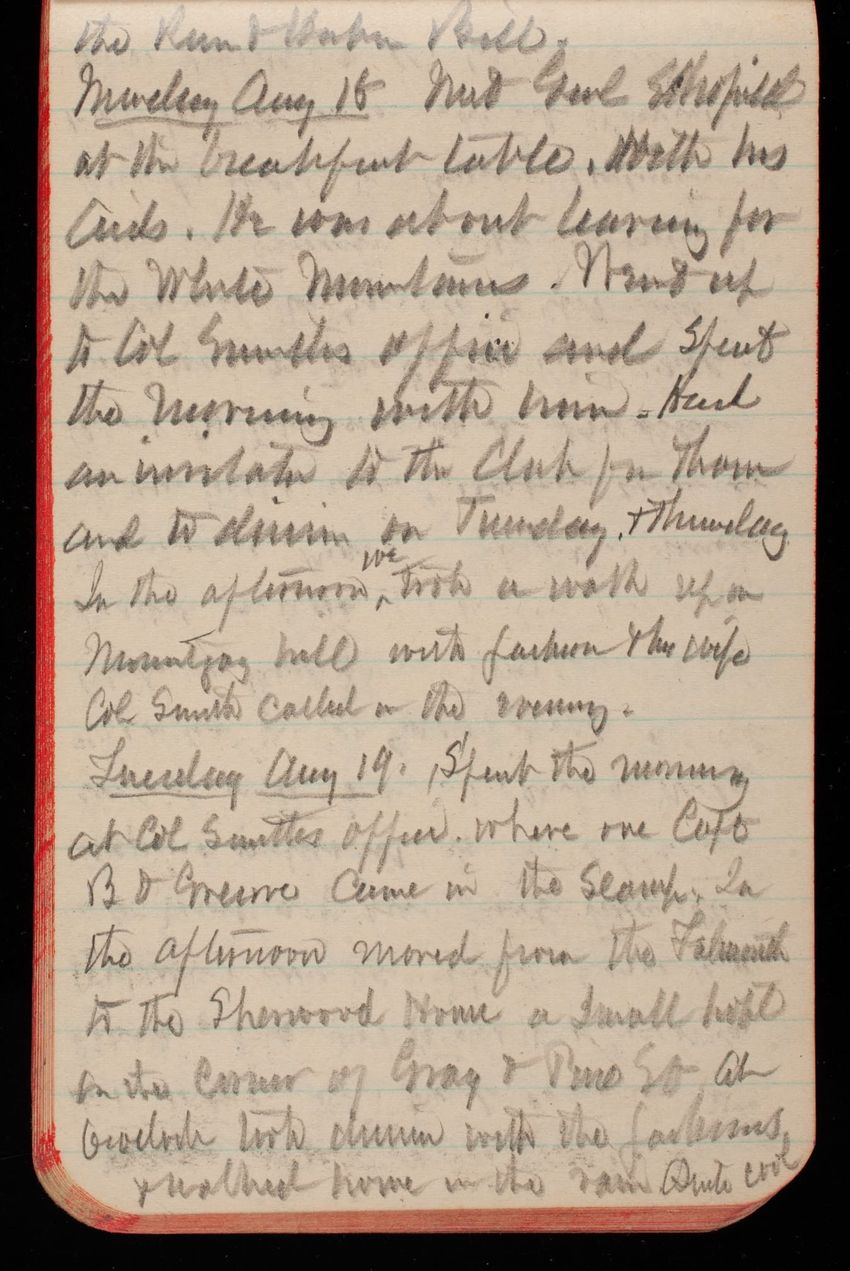 the River & Harbor Bill.
Monday Aug 18 Met Genl Schofield
at the breakfast table. With his
Aids. He was about leaving for
the White Mountains. Went up
to Col Smiths office and Spent
the Morning with him. Had
an invitation to the Club for
and to dinner on Tuesday. + Thursday
In the afternoon, we took a walk up on
Mountjoy hill with Jackson & his wife
Col Smith called in the evening.
Tuesday Aug 19. Spent the morning
at Col Smiths office. where one Capt
came in the In
the afternoon moved from the Falmouth
to the Sherwood House a Small hotel
on the corner of Gray & Pine St At
6 oclock took dinner with the Jacksons
& walked home in the rain Quite cool